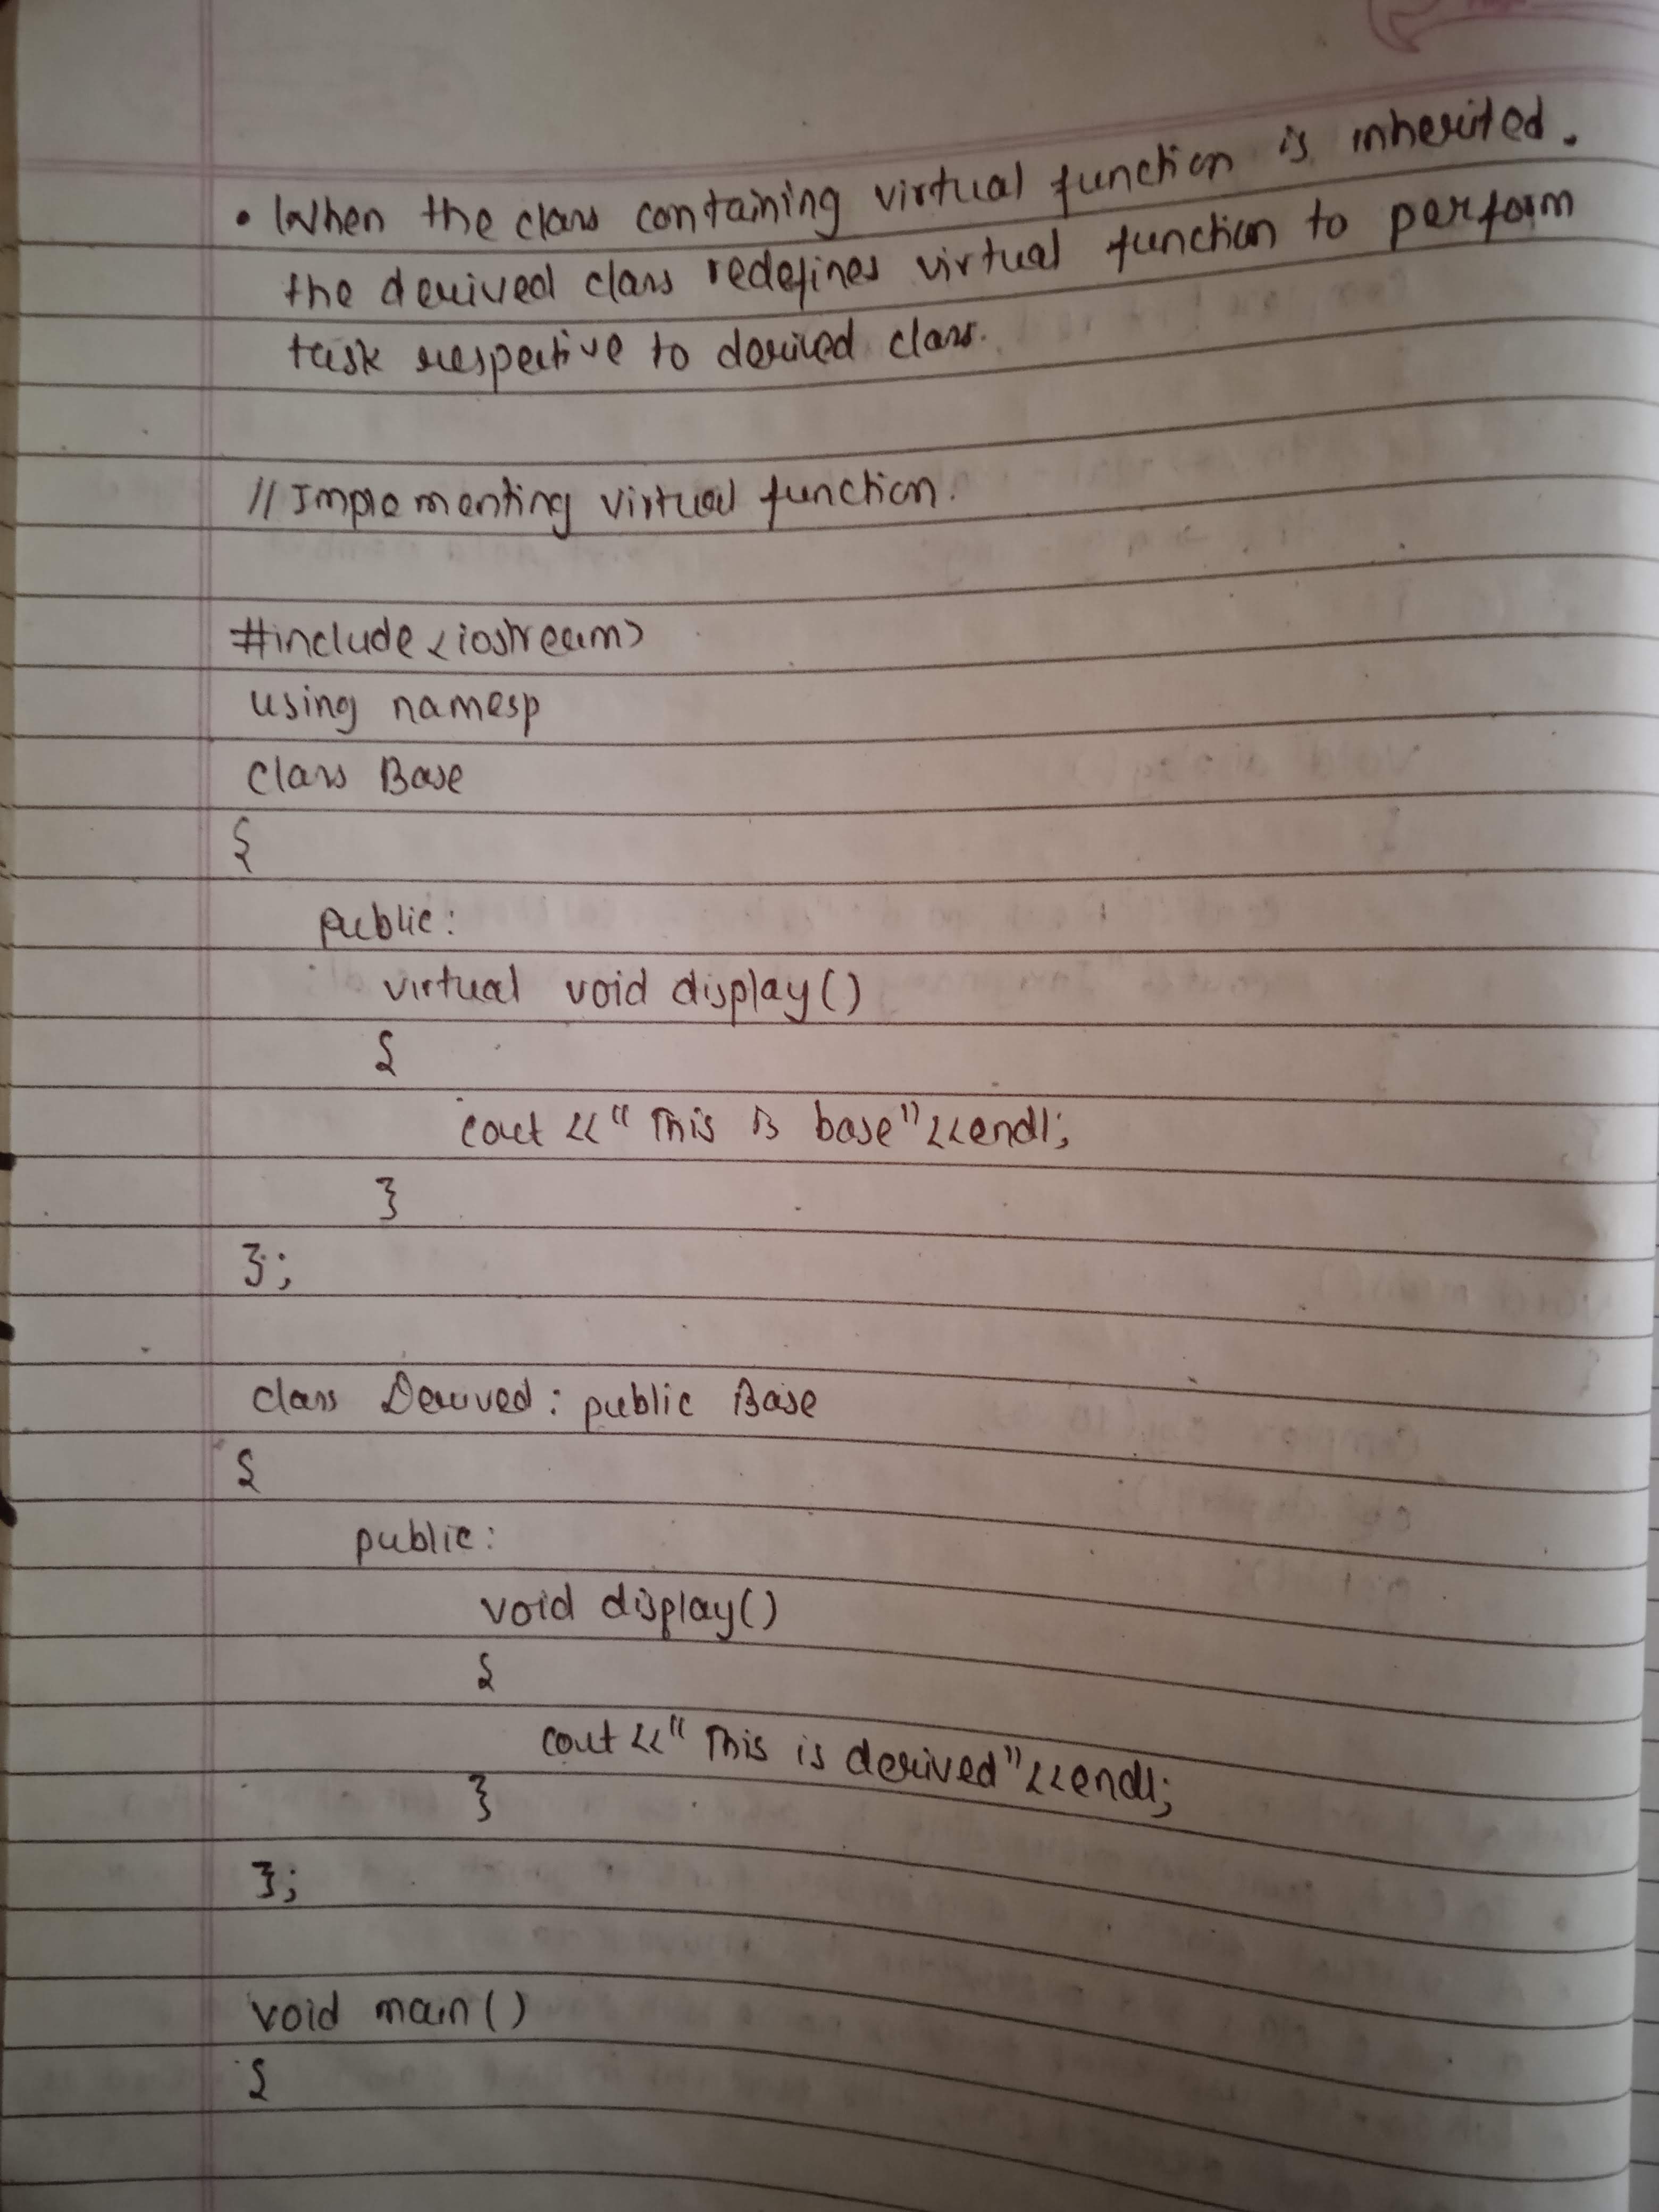 • When the class containing virtual function is inherited.
the derived class redefines virtual function to perform
task respective to derived class.
// Implementing virtual function.
#include <iostream>
using namesp
class Base
{
public:
virtual void display()
{
cout << "This is base"<<endl;
}
};
class Derived : public Base
{
public:
void display()
{
cout << "This is derived"<<endl;
}
};
void main()
{